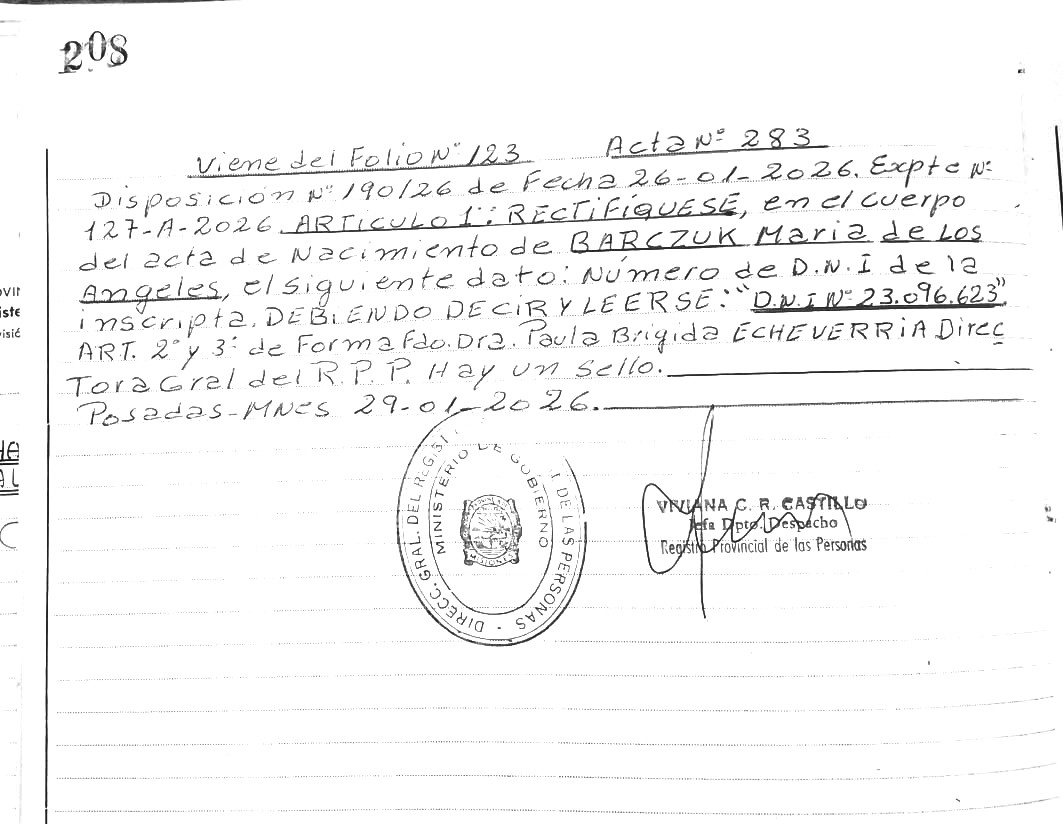 208
Viene del Folio Nº 123 Acta Nº 283
Disposición Nº 190/26 de Fecha 26-01-2026. Expte Nº
127-A-2026. ARTICULO 1º: RECTIFÍQUESE, en el cuerpo
del acta de Nacimiento de BARCZUK Maria de Los
Angeles, el siguiente dato: Número de D.N.I de la
inscripta. DEBIENDO DECIR Y LEERSE: "D.N.I Nº 23.096.623"
ART. 2º y 3º de Forma Fdo. Dra. Paula Brigida ECHEVERRIA Direc
Tora Gral del R.P.P. Hay un Sello.
Posadas-MNES 29-01-2026.
DIRECC. GRAL. DEL REGIST DE LAS PERSONAS -
MINISTERIO DE GOBIERNO
VIVIANA C. R. CASTILLO
Jefa Dpto. Despacho
Registro Provincial de las Personas